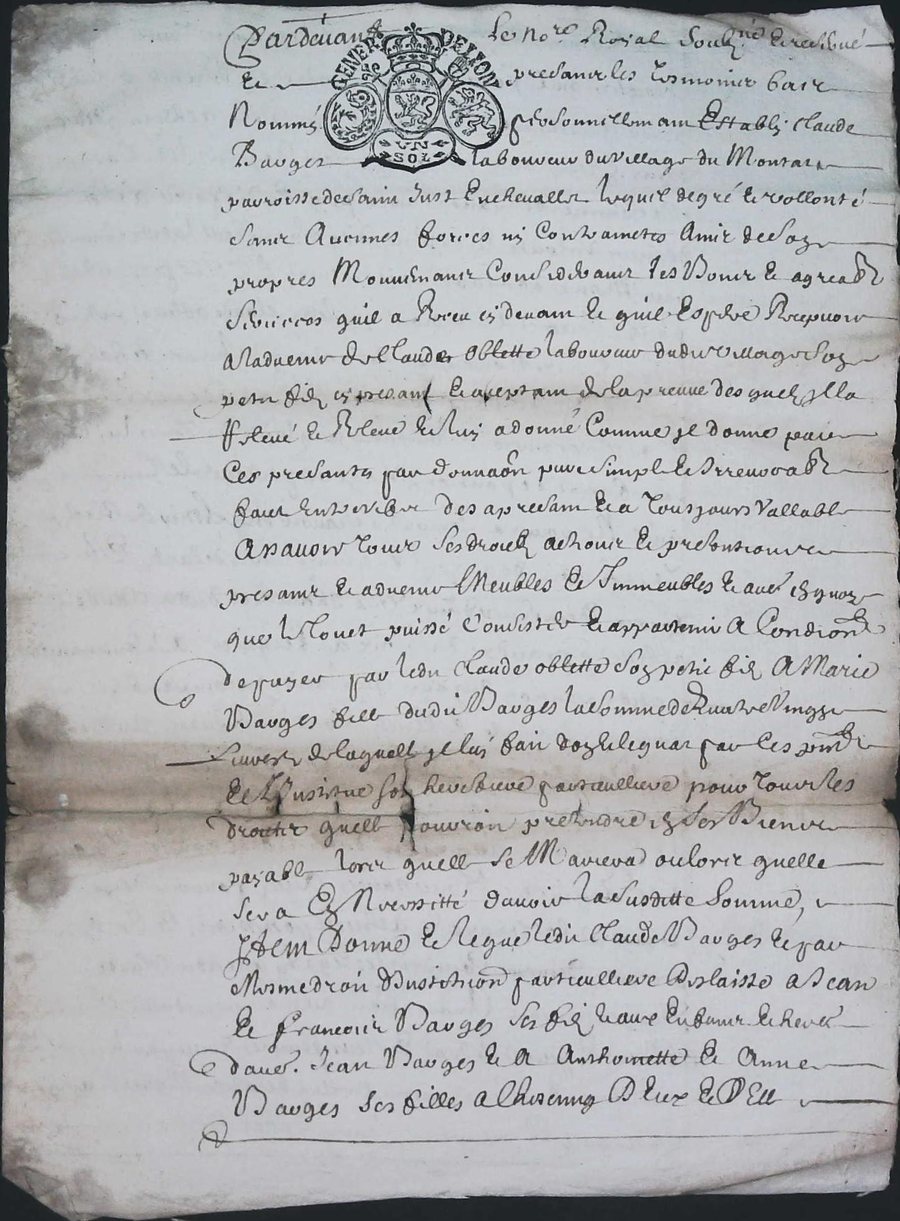 Pardevant le No.re Royal soub.né
Et presant les tesmoins bas
Nommés personnellemant Establi Claude
Barges laboureur du village du Montar
GENER DE LION
UN SOL
parroisse de saint Just En chevalle lequel de gré et vollonté
sans Aucunes forces ni Contraintes Ains de son
propres Mouvemant Considerant les Bons et agreabl
services quil a Receu ci devant et quil Espere Recepvoir
A ladvenir de Claude oblette laboureur dudit village son
petit fils ci presant et aceptant de la preuve desquels Il la
Relevé et Releve et luy a donné Comme Il donne par
Ces presantes par donnaon pure simple et Irrevocabl
faite Entre vifs des apresant et a Tousjours Vallabl
A savoir tous ses droits et pretentions
presant et advenir Meubles et Immeubles et
que le tout puisse Consister et appartenir A Condion
de payer par ledit Claude oblette son petit fils A Marie
Barges fille dudit Barges la somme de quatre Vingts
Livres de laquelle Il luy fait don et legat par Ces
Et Institue son heretiere particulliere pour tous les
droits quell pourroit pretendre En ses Biens
payabl lors quell se Mariera ou lors quelle
sera En Necessitté davoir la susditte somme,
Item Donne et legue ledit Claude Barges et par
Mesme droit dinstitution particulliere Delaisse a Jean
Et francois Barges ses fils et aux Enfants
Jean Barges et A Anthoinette et Anne
Barges ses filles a Chascung DEux et DEll